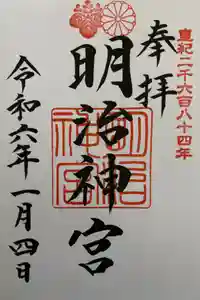 皇紀二千六百八十四年
奉拝
明治神宮
令和六年一月四日
明治神宮